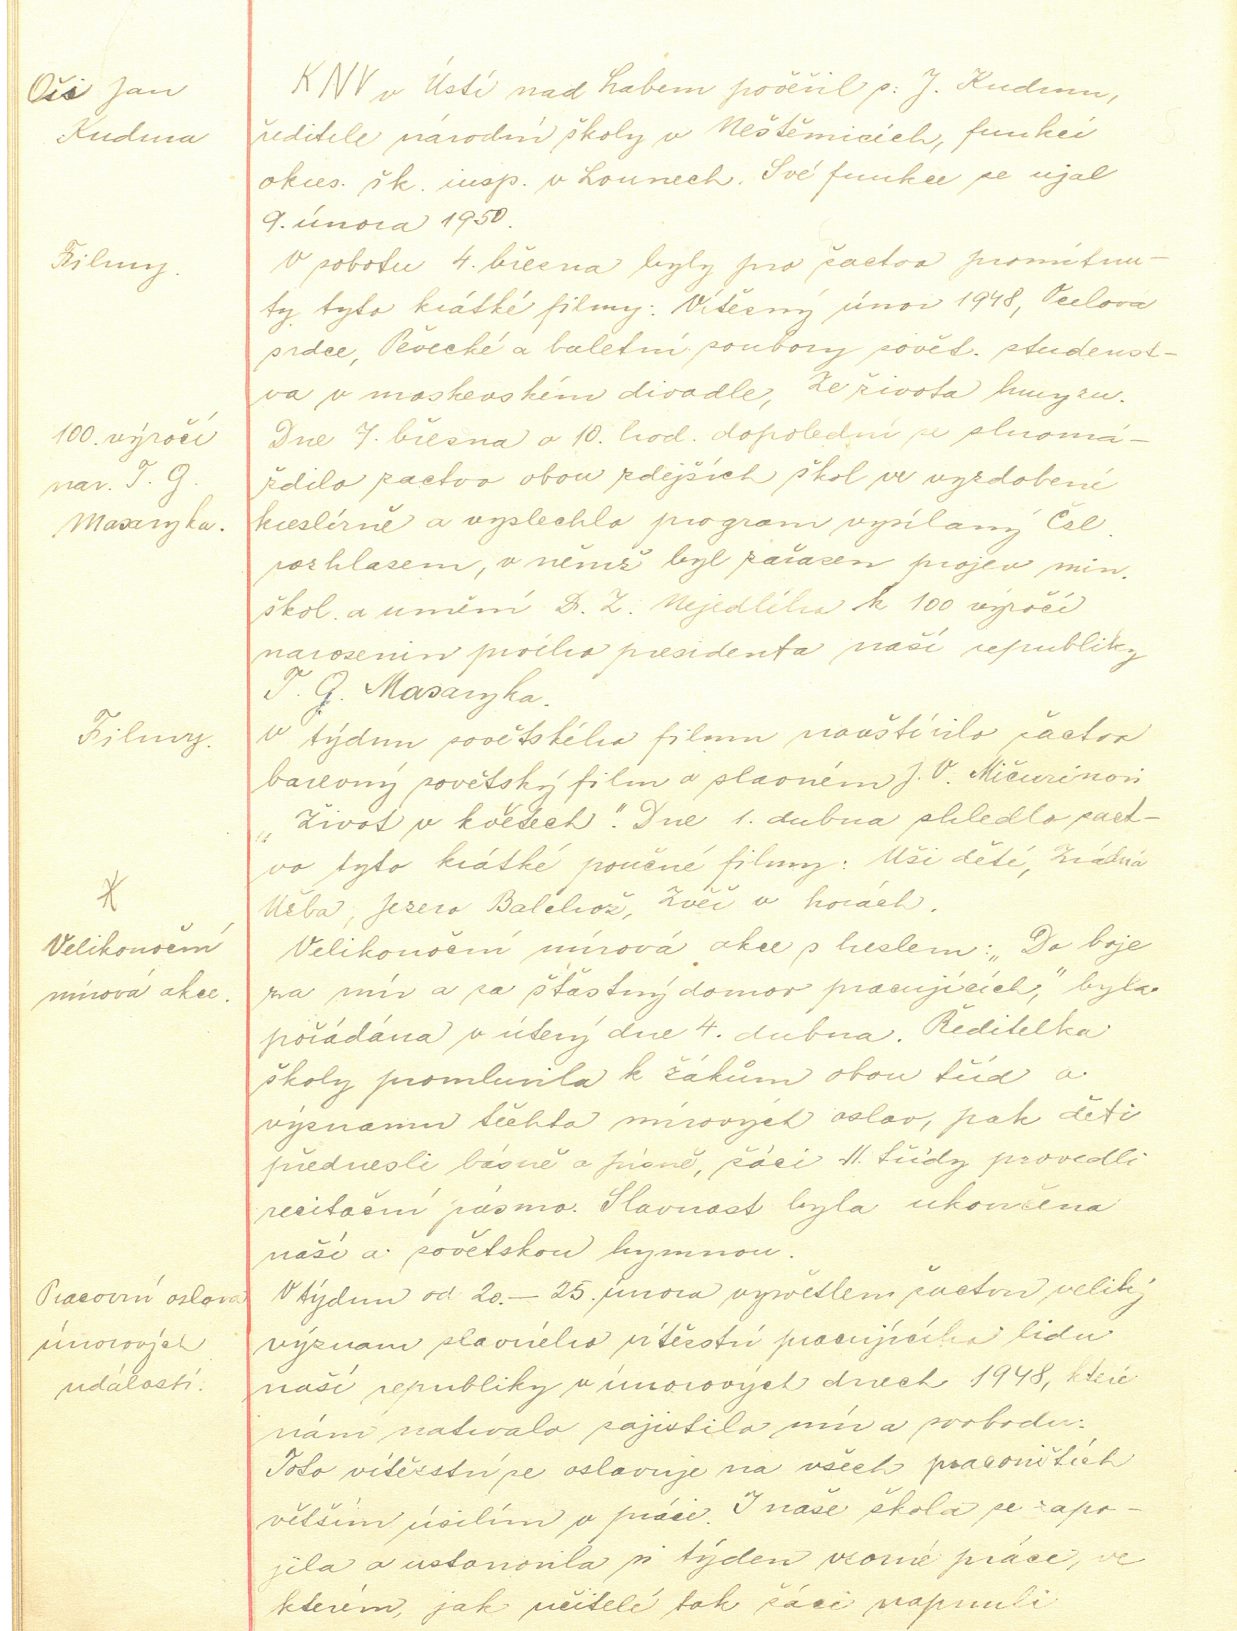 Oši Jan
Kudrna
KNV v Ústí nad Labem pověřil s. J. Kudrnu,
ředitele národní školy v Neštěmicích, funkcí
okres. šk. insp. v Lounech. Své funkce se ujal
9. února 1950.
Filmy.
V sobotu 4. března byly pro žactvo promítnu-
ty tyto krátké filmy: Vítězný únor 1948, Ocelová
srdce, Pěvecké a baletní soubory sovět. studenst-
va v moskevském divadle, Ze života hmyzu.
100. výročí
nar. T. G.
Masaryka.
Dne 7. března o 10. hod. dopolední se shromá-
ždilo žactvo obou zdejších škol ve vyzdobení
kreslírně a vyslechlo program vysílaný Čsl.
rozhlasem, v němž byl zařazen projev min.
škol. a umění Dr. Z. Nejedlého k 100 výročí
narozenin prvého presidenta naší republiky
T. G. Masaryka.
Filmy.
V týdnu sovětského filmu navštívilo žactvo
barevný sovětský film o slavném J. V. Mičurinovi
„Život v květech". Dne 1. dubna shledlo žact-
vo tyto krátké poučné filmy: Uši dětí, Zrádná
Užba, Jezero Balchaš, Zvěř v horách.
Velikonoční
mírová akce.
Velikonoční mírová akce s heslem: „Do boje
za mír a za šťastný domov pracujících," byla
pořádána v úterý dne 4. dubna. Ředitelka
školy promluvila k žákům obou tříd o
významu těchto mírových oslav, pak děti
přednesli básně a písně, žáci II. třídy provedli
recitační pásmo. Slavnost byla ukončena
naší a sovětskou hymnou.
Pracovní oslava
únorových
událostí.
V týdnu od 20. – 25. února vysvětlen žactvu veliký
význam slavného vítězství pracujícího lidu
naší republiky v únorových dnech 1948, které
nám natrvalo zajistilo mír a svobodu.
Toto vítězství se oslavuje na všech pracovištích
větším úsilím v práci. I naše škola se zapo-
jila a ustanovila si týden vzorné práce, ve
kterém, jak učitelé tak žáci napnuli